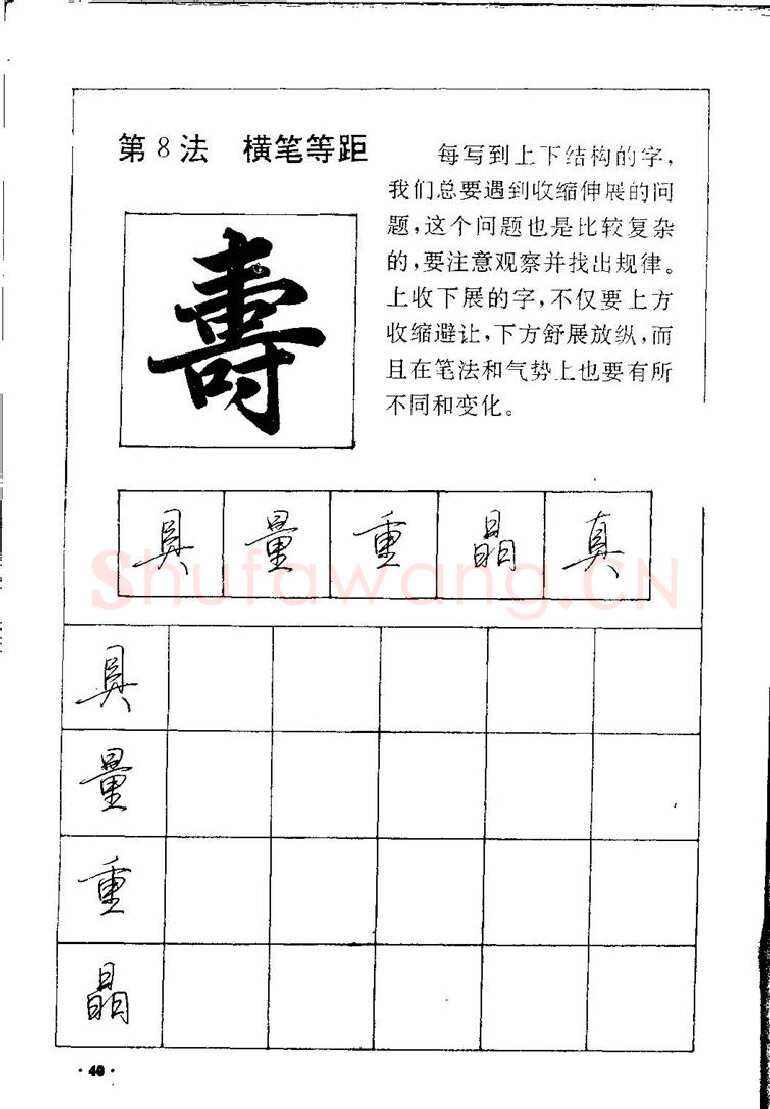 第8法 横笔等距
每写到上下结构的字，
我们总要遇到收缩伸展的问
题，这个问题也是比较复杂
的，要注意观察并找出规律。
上收下展的字，不仅要上方
收缩避让，下方舒展放纵，而
且在笔法和气势上也要有所
不同和变化。
壽
具 量 重 晶 真
Shufawang.CN
具
量
重
晶
·40·